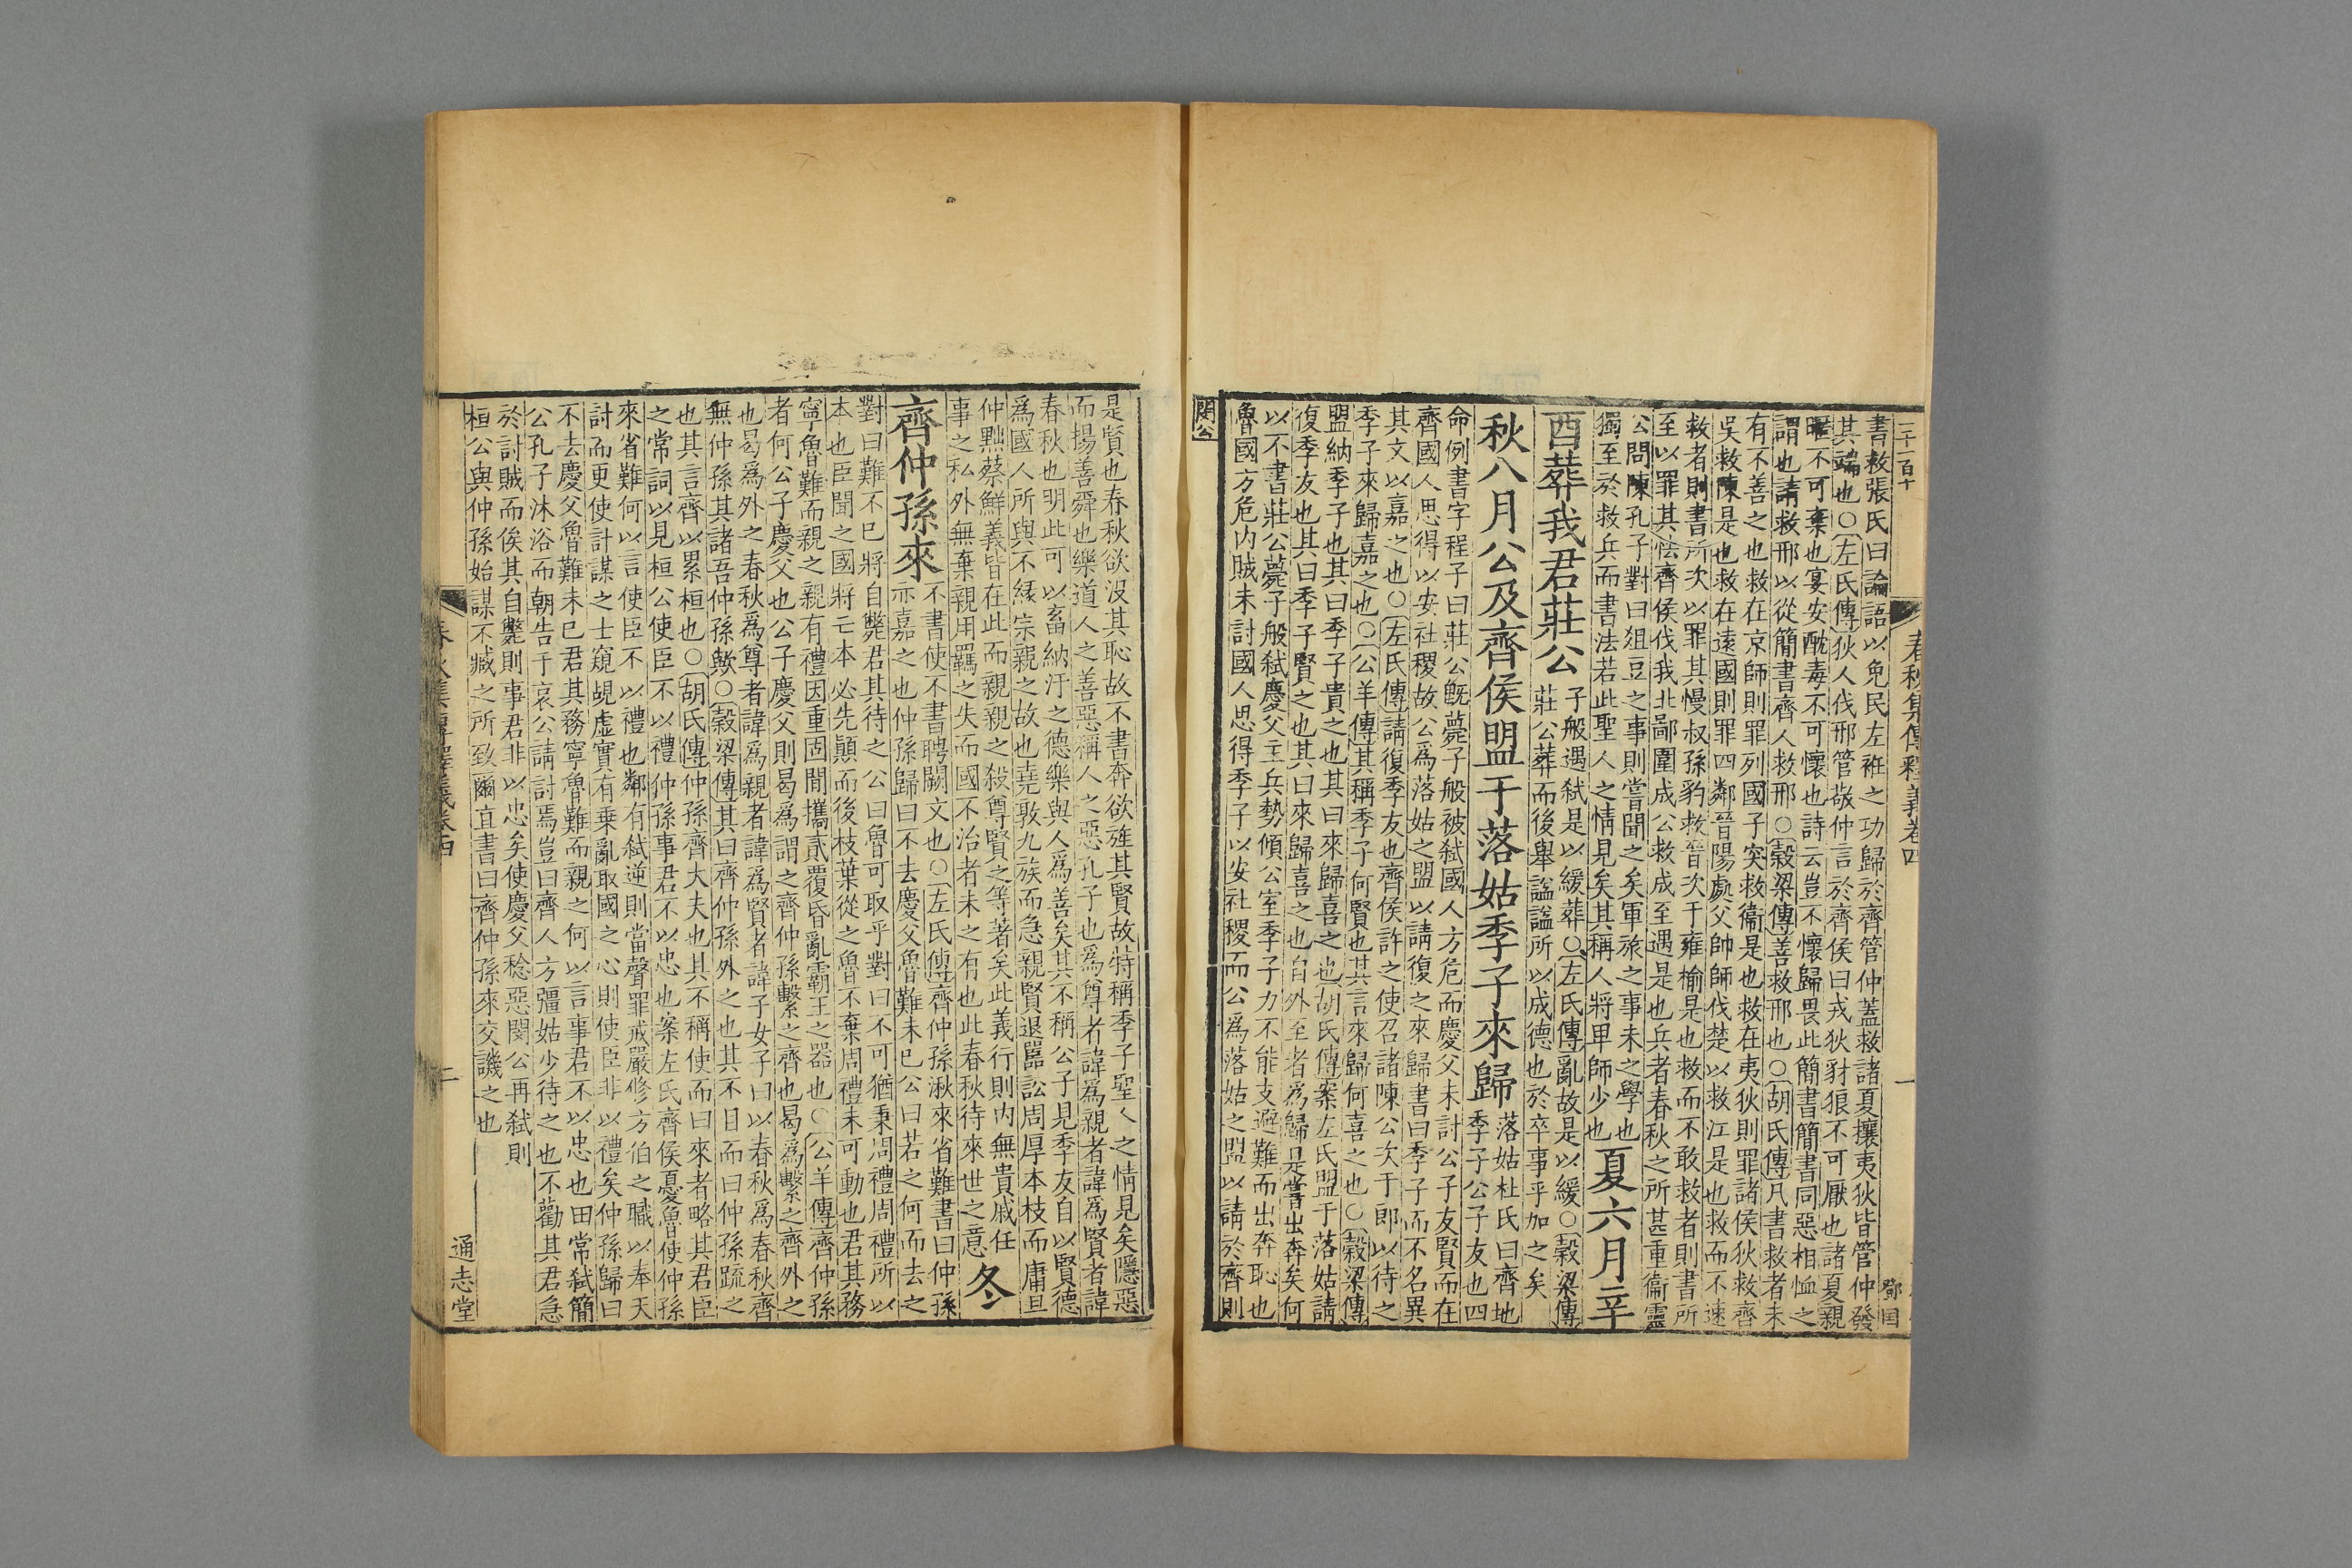 三十二百十
春秋集傳釋義卷四
一
鄧国
書救張氏曰論語以免民左袵之功歸於齊管仲蓋救諸夏攘夷狄皆管仲發
其端也○左氏傳狄人伐邢管敬仲言於齊侯曰戎狄豺狼不可厭也諸夏親
暱不可棄也宴安酖毒不可懷也詩云豈不懷歸畏此簡書簡書同惡相恤之
謂也請救邢以從簡書齊人救邢○穀梁傳善救邢也○胡氏傳凡書救者未
有不善之也救在京師則罪列國子突救衞是也救在夷狄則罪諸侯狄救齊
吳救陳是也救在遠國則罪四鄰晉陽處父帥師伐楚以救江是也救而不速
救者則書所次以罪其慢叔孫豹救晉次于雍榆是也救而不敢救者則書所
至以罪其怯齊侯伐我北鄙圍成公救成至遇是也兵者春秋之所甚重衞靈
公問陳孔子對曰俎豆之事則嘗聞之矣軍旅之事未之學也
獨至於救兵而書法若此聖人之情見矣其稱人將卑師少也
夏六月辛
酉葬我君莊公
子般遇弑是以緩葬○左氏傳亂故是以緩○穀梁傳
莊公葬而後舉謚謚所以成德也於卒事乎加之矣
秋八月公及齊侯盟于落姑季子來歸
落姑杜氏曰齊地
季子公子友也四
命例書字程子曰莊公旣薨子般被弑國人方危而慶父未討公子友賢而在
齊國人思得以安社稷故公爲落姑之盟以請復之來歸書曰季子而不名異
其文以嘉之也○左氏傳請復季友也齊侯許之使召諸陳公次于郎以待之
季子來歸嘉之也○公羊傳其稱季子何賢也其言來歸何喜之也○穀梁傳
盟納季子也其曰季子貴之也其曰來歸喜之也胡氏傳案左氏盟于落姑請
復季友也其曰季子賢之也其曰來歸喜之也自外至者爲歸是嘗出奔矣何
以不書莊公薨子般弑慶父主兵勢傾公室季子力不能支避難而出奔恥也
魯國方危內賊未討國人思得季子以安社稷而公爲落姑之盟以請於齊則
閔公
是賢也春秋欲沒其恥故不書奔欲旌其賢故特稱季子聖人之情見矣隱惡
而揚善舜也樂道人之善惡稱人之惡孔子也爲尊者諱爲親者諱爲賢者諱
春秋也明此可以畜納汙之德樂與人爲善矣其不稱公子見季友自以賢德
爲國人所與不緣宗親之故也堯敦九族而急親賢退嚚訟周厚本枝而庸旦
仲黜蔡鮮義皆在此而親親之殺尊賢之等著矣此義行則內無貴戚任
事之私外無棄親用羈之失而國不治者未之有也此春秋待來世之意
冬
齊仲孫來
不書使不書聘闕文也○左氏傳齊仲孫湫來省難書曰仲孫
亦嘉之也仲孫歸曰不去慶父魯難未已公曰若之何而去之
對曰難不已將自斃君其待之公曰魯可取乎對曰不可猶秉周禮周禮所以
本也臣聞之國將亡本必先顛而後枝葉從之魯不棄周禮未可動也君其務
寧魯難而親之親有禮因重固閒攜貳覆昏亂霸王之器也○公羊傳齊仲孫
者何公子慶父也公子慶父則曷爲謂之齊仲孫繫之齊也曷爲繫之齊外之
也曷爲外之春秋爲尊者諱爲親者諱爲賢者諱子女子曰以春秋爲春秋齊
無仲孫其諸吾仲孫歟○穀梁傳其曰齊仲孫外之也其不目而曰仲孫疏之
也其言齊以累桓也○胡氏傳仲孫齊大夫也其不稱使而曰來者略其君臣
之常詞以見桓公使臣不以禮仲孫事君不以忠也案左氏齊侯憂魯使仲孫
來省難何以言使臣不以禮也鄰有弑逆則當聲罪戒嚴修方伯之職以奉天
討而更使計謀之士窺覘虛實有乘亂取國之心則使臣非以禮矣仲孫歸曰
不去慶父魯難未已君其務寧魯難而親之何以言事君不以忠也田常弑簡
公孔子沐浴而朝告于哀公請討焉豈曰齊人方彊姑少待之也不勸其君急
於討賊而俟其自斃則事君非以忠矣使慶父稔惡閔公再弑則
桓公與仲孫始謀不臧之所致爾直書曰齊仲孫來交譏之也
春秋集傳釋義卷四
二
通志堂